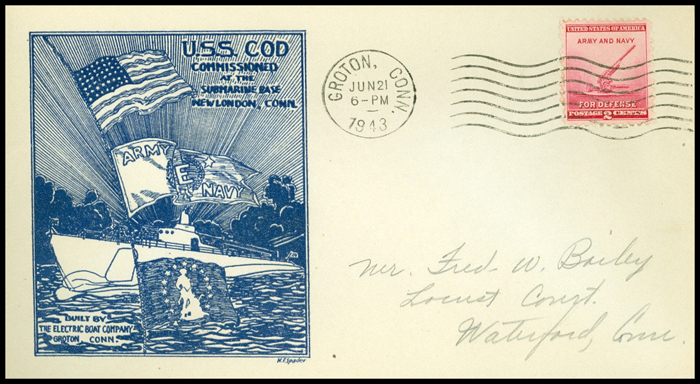 U.S.S. COD
COMMISSIONED
AT THE
SUBMARINE BASE
NEW LONDON, CONN.
ARMY E NAVY
BUILT BY
THE ELECTRIC BOAT COMPANY
GROTON, CONN.
GROTON, CONN.
JUN 21
6-PM
1943
UNITED STATES OF AMERICA
ARMY AND NAVY
FOR DEFENSE
POSTAGE 2 CENTS
Mr. Fred. W. Bailey
Locust Court.
Waterford, Conn.